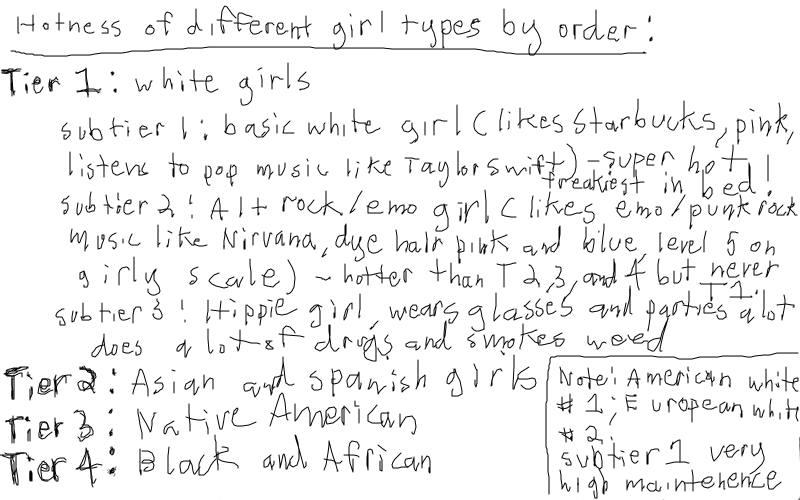 Hotness of different girl types by order:
Tier 1: white girls
subtier 1: basic white girl (likes Starbucks, pink,
listens to pop music like Taylor Swift) - super hot,
freakiest in bed!
subtier 2: Alt rock/emo girl (likes emo/punk rock
music like Nirvana, dye hair pink and blue, level 5 on
girly scale) ~ hotter than T2,3, and 4 but never
T1.
subtier 3: Hippie girl, wears glasses and parties a lot
does a lot of drugs and smokes weed
Tier 2: Asian and spanish girls
Tier 3: Native American
Tier 4: Black and African
Note: American white
#1; European white
#2.
subtier 1 very
high maintenence